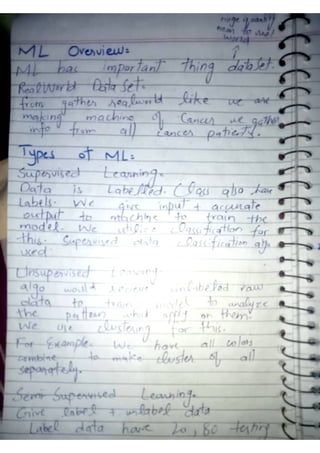 huge quantity
near to real
world
ML Overview:
ML has important thing dataset.
RealWorld Data Set:
from gather realworld like we are
making machine of Cancer we gather
info from all cancer patients.
Types of ML:
Supervised Learning:
Data is Labelled. (Class also have
Labels. We give input + accurate
output to machine to train the
model. We utilize classification for
this. Supervised data classification algo
used.
Unsupervised Learning:
algo would receive unlabeled raw
data to train model to analyze
the pattern what apply on them.
We use clustering for this.
For Example. We have all colors
combine to make cluster of all
separately.
Semi Supervised Learning.
Give label + unlabel data
Label data have 20, 80 testing